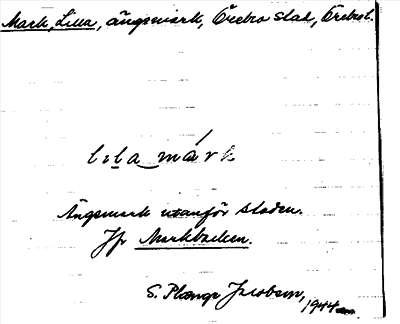 Mark, Lilla, ängsmark, Örebro stad, Örebro l.
lıla márk
Ängsmark utanför staden.
Jfr Markbacken.
S. Plange Jacobson,
1944